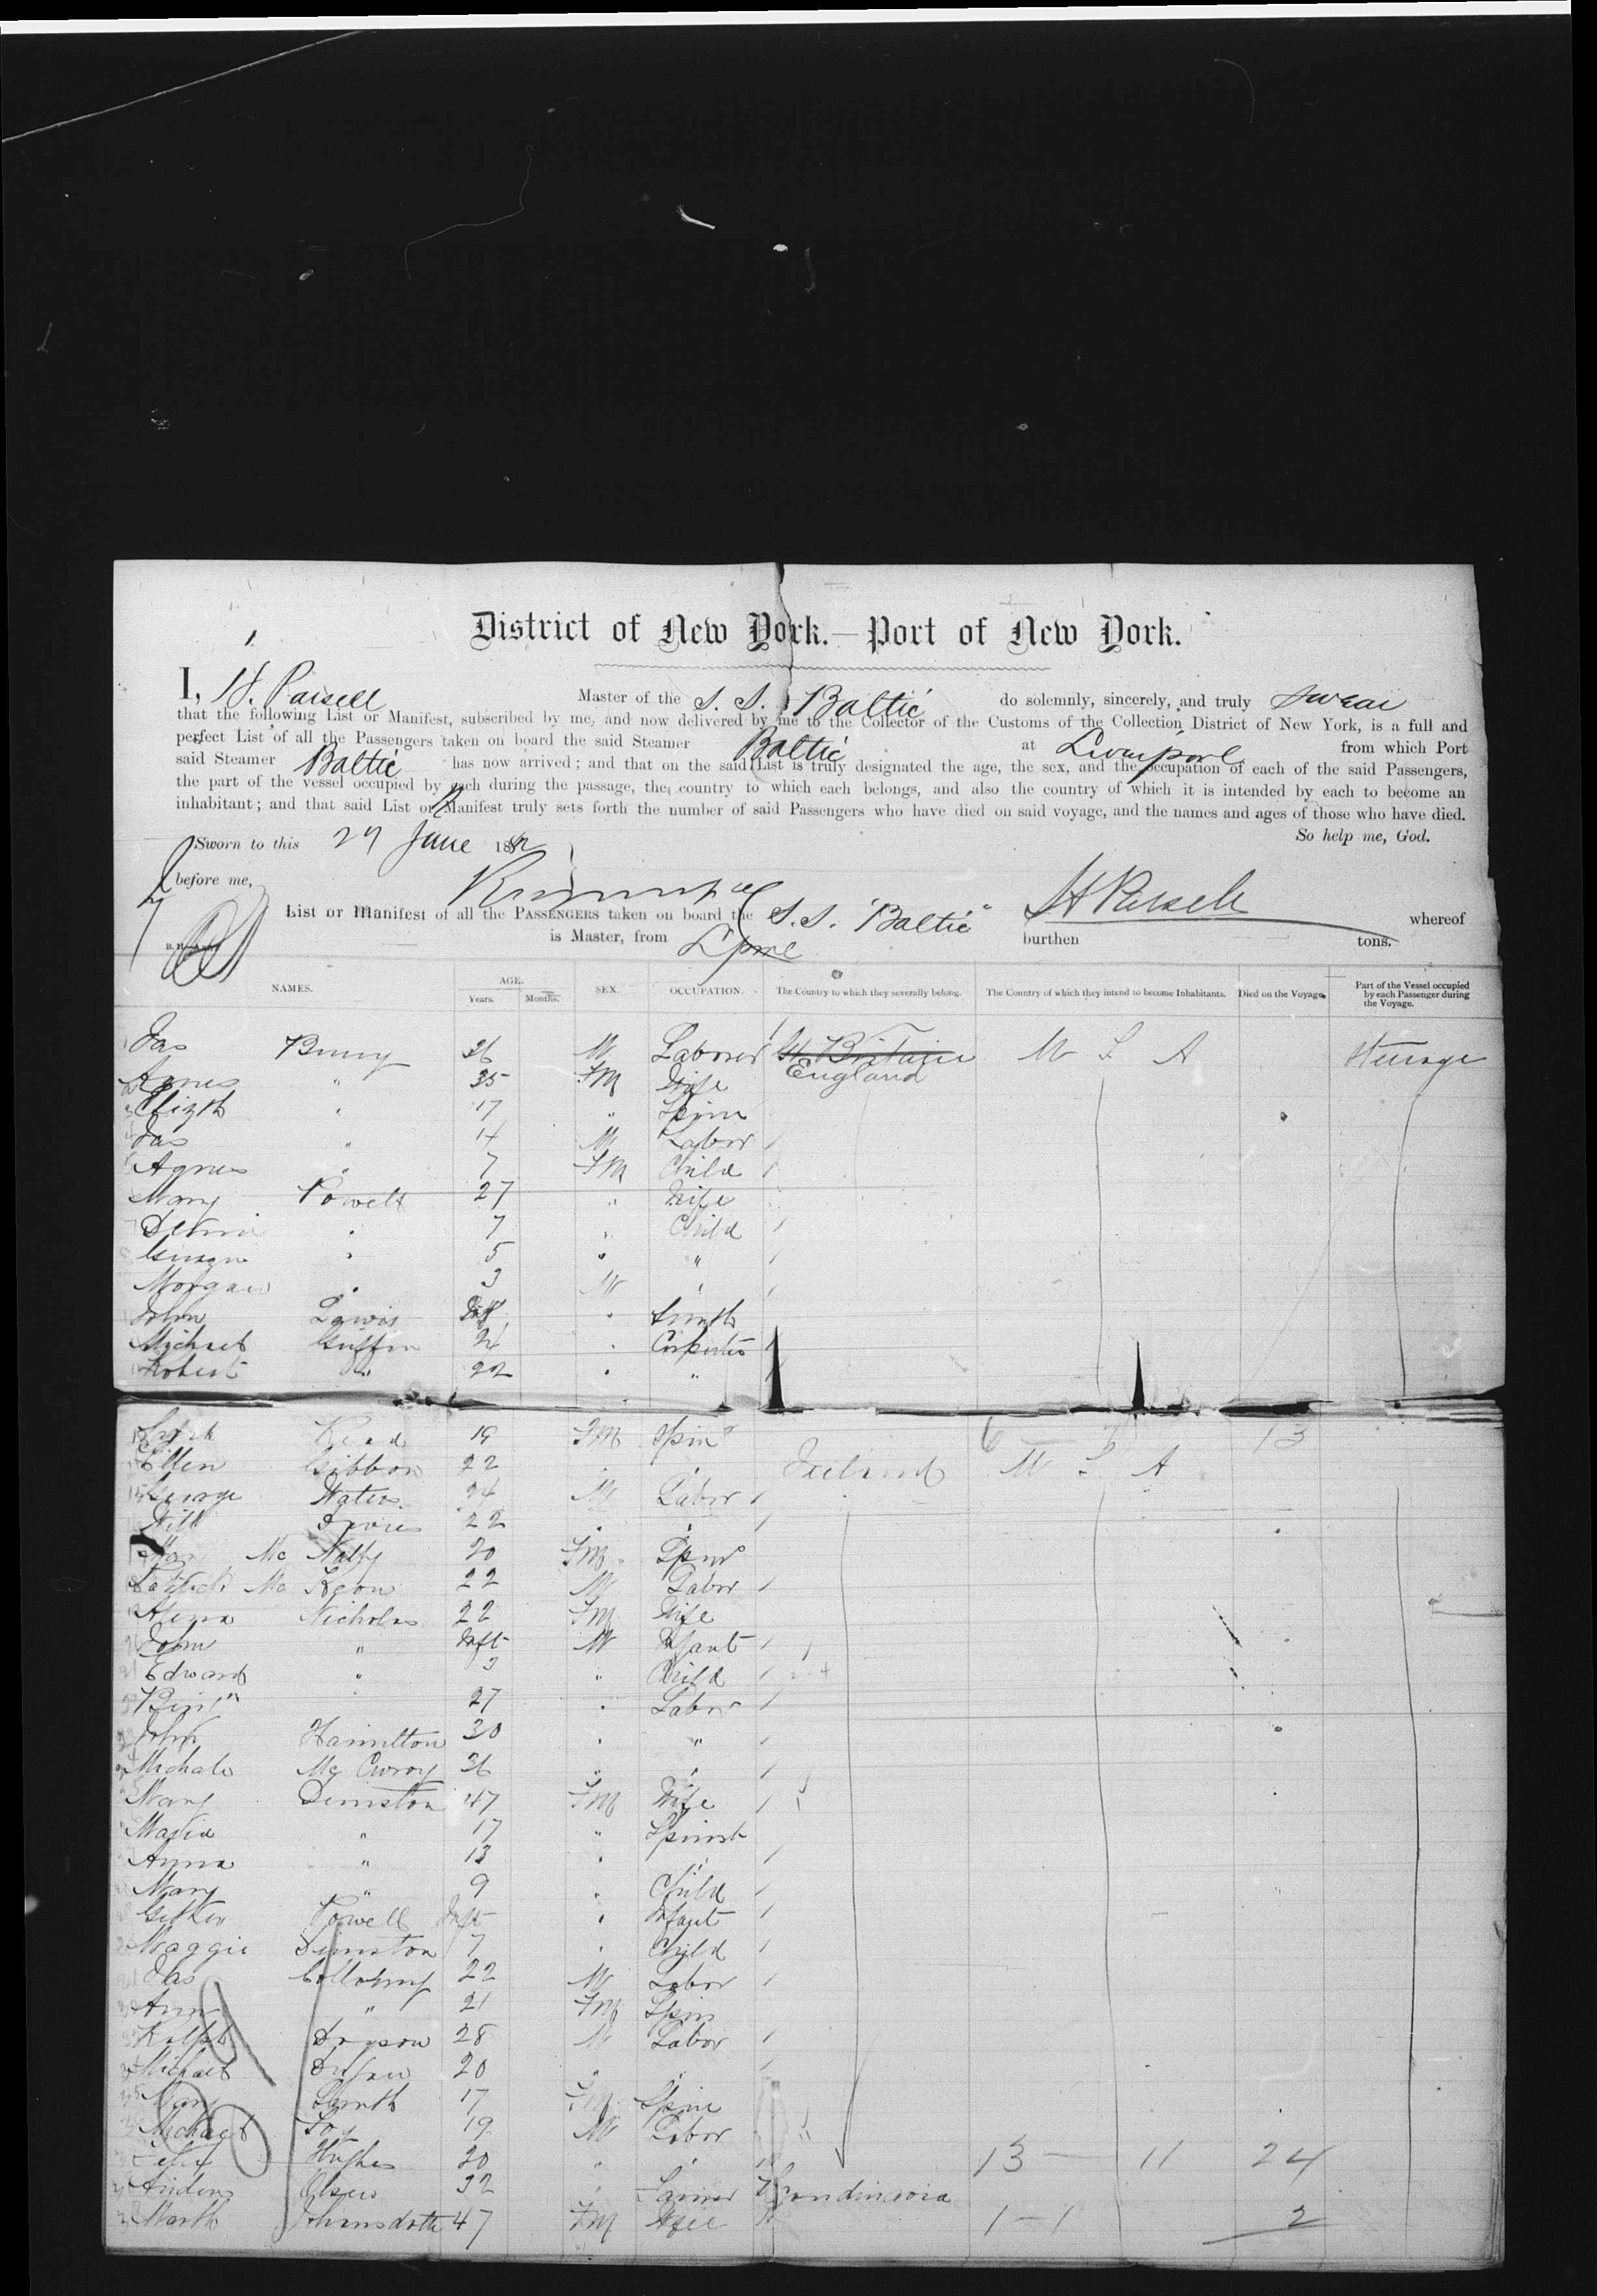 District of New York.— Port of New York.
I, H. Parsell Master of the S. S. Baltic do solemnly, sincerely, and truly swear
that the following List or Manifest, subscribed by me, and now delivered by me to the Collector of the Customs of the Collection District of New York, is a full and
perfect List of all the Passengers taken on board the said Steamer Baltic at Liverpool from which Port
said Steamer Baltic has now arrived; and that on the said List is truly designated the age, the sex, and the occupation of each of the said Passengers,
the part of the vessel occupied by each during the passage, the country to which each belongs, and also the country of which it is intended by each to become an
inhabitant; and that said List or Manifest truly sets forth the number of said Passengers who have died on said voyage, and the names and ages of those who have died.
So help me, God.
Sworn to this 27 June 188
before me,
List or Manifest of all the PASSENGERS taken on board the S. S. "Baltic" H Parsell whereof
is Master, from Lpool burthen tons.
NAMES. AGE. Years. Months. SEX. OCCUPATION. The Country to which they severally belong. The Country of which they intend to become Inhabitants. Died on the Voyage. Part of the Vessel occupied by each Passenger during the Voyage.
Jas 36 M Laborer Gt Britain U S A Steerage
Agnes " 35 FM Wife England
Elizth " 17 " Spins
Jas " 14 M Labor
Agnes " 7 FM Child
Mary Powell 27 " Wife
7 " Child
" 5 " "
Morgan " 3 M "
John Lewis " Smith
Michael Griffin 24 " Carpenter
Robert " 22 " "
Sarah Read 19 FM Spin 6 13
Ellen Gibbon 22 " " Ireland U S A
George Waters 24 M Labor
Will Davies 22 " "
Mc Nally 20 FM Spin
Patrick Mc Keon 22 M Labor
Nicholas 22 FM Wife
John " Inft M Infant
Edward " 3 " Child
Benjn " 27 " Labor
John Hamilton 30 " "
Michale 36 " "
Mary Dimston 47 FM Wife
Maria " 17 " Spinst
Anna " 13 " "
Mary " 9 " Child
Powell Inft " Infant
Maggie Dimston 7 " Child
Jas 22 M Labor
Ann " 21 FM Spin
Ralph Dryson 28 M Labor
Michael 20 " "
Mary Smith 17 FM Spin
Michael Foy 19 M Labor
Hughes 20 " " 13 — 11 24
Olsen 32 " Scandinavia
Marth Johnsdottr 47 FM Wife 1 — 1 2